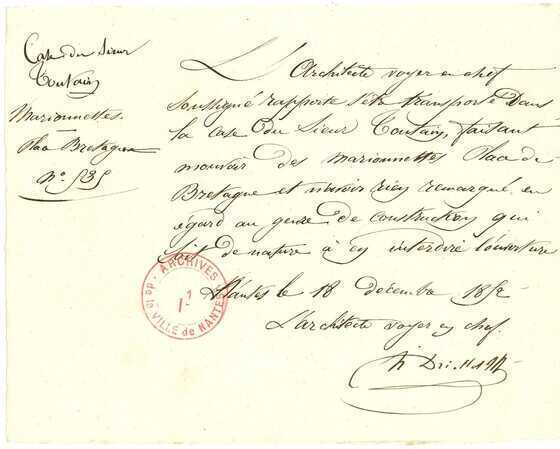 Case du Sieur
Toutain
Marionnettes.
Place Bretagne
N° 535
L'Architecte voyer en chef
soussigné rapporte s'être transporté dans
la case du Sieur Toutain, faisant
mouvoir des marionnettes Place de
Bretagne et n'avoir rien remarqué, en
égard au genre de construction qui
soit de nature à en interdire l'ouverture
Nantes le 18 décembre 185
L'architecte voyer en chef.
ARCHIVES
de la VILLE de NANTES